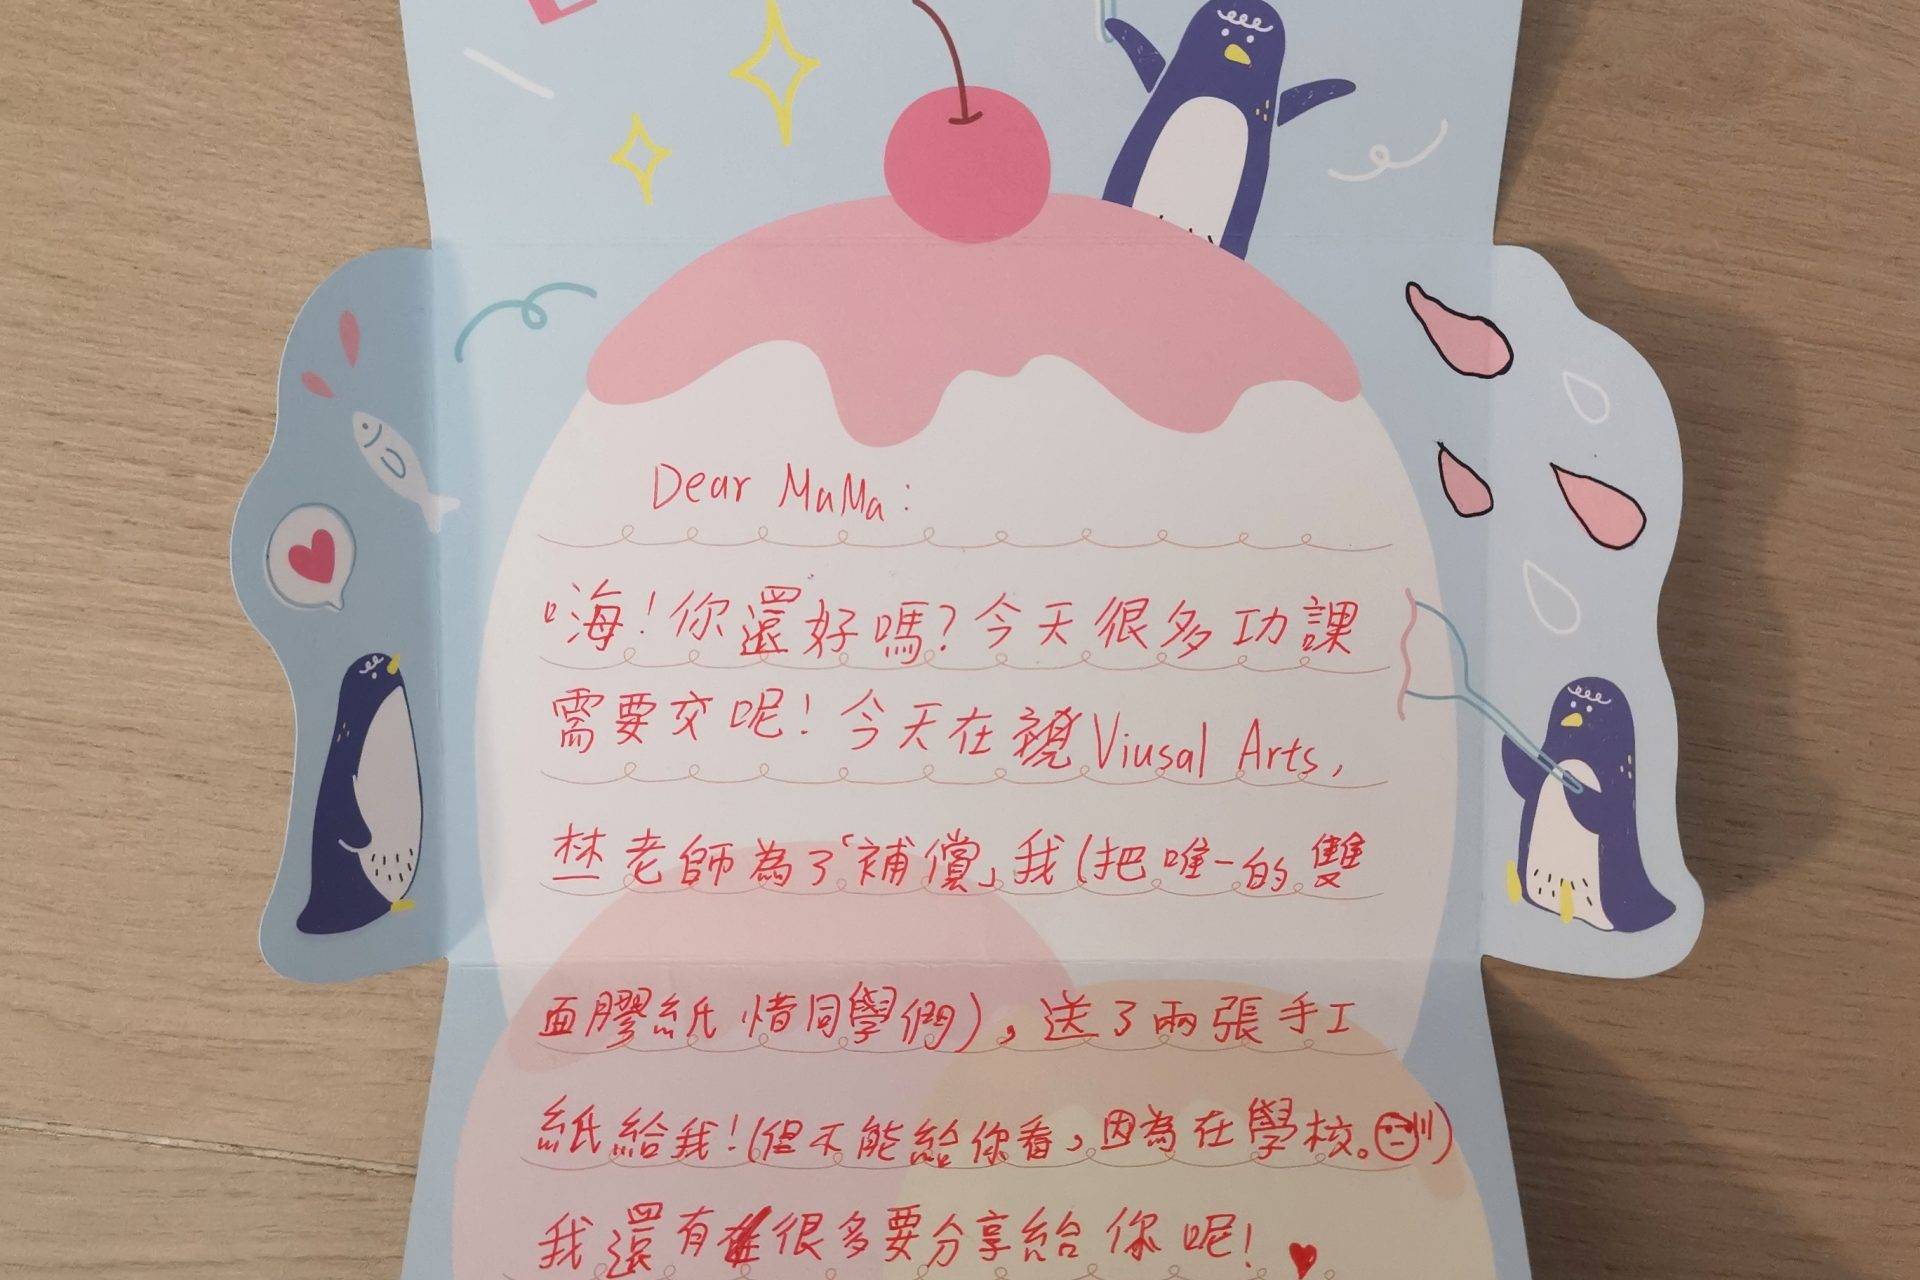 Dear MaMa:
嗨!你還好嗎?今天很多功課
需要交呢!今天在視覺Viusal Arts,
林老師為了「補償」我(把唯一的雙
面膠紙借同學們),送了兩張手工
紙給我!(但不能給你看,因為在學校。)
我還有很多要分享給你呢!